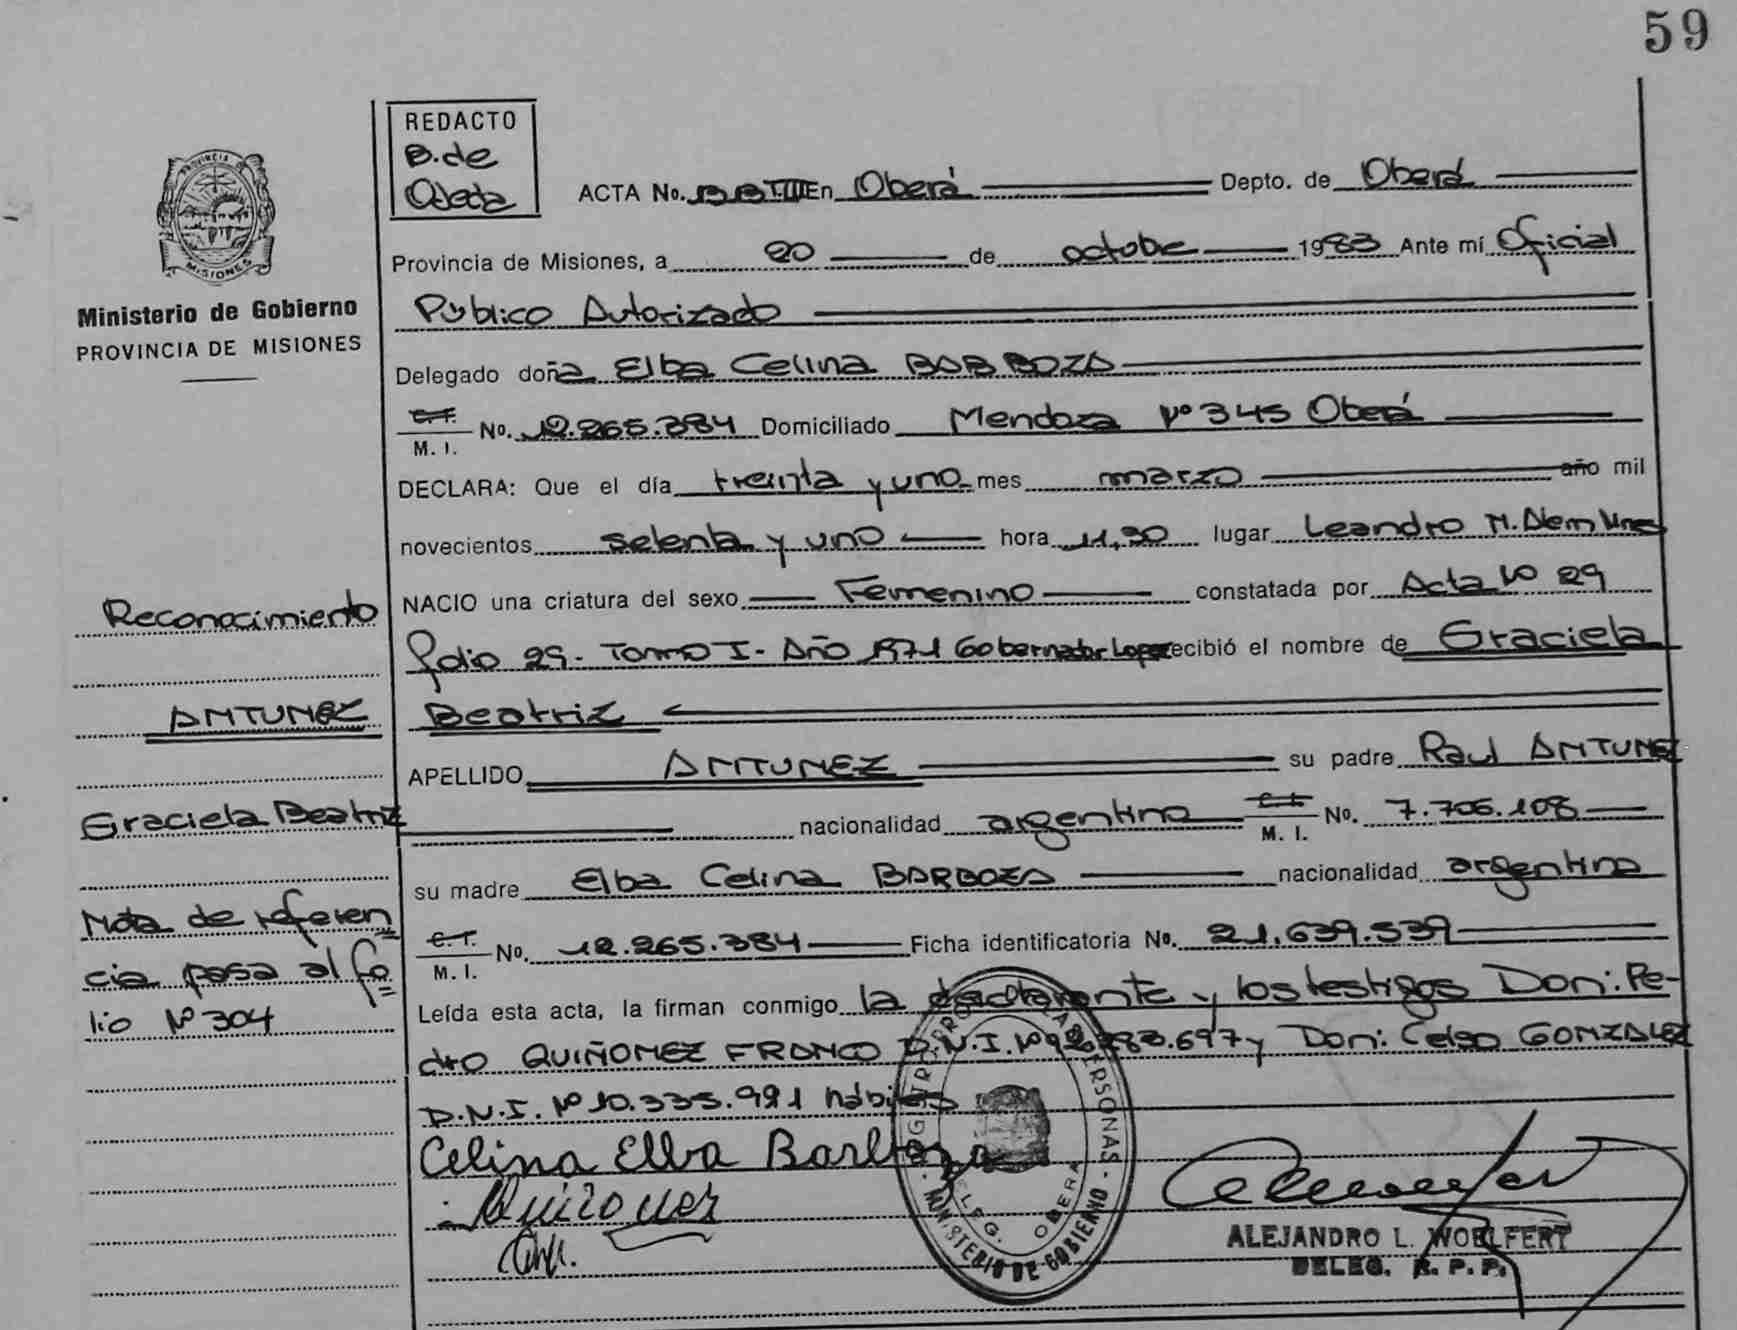 59
REDACTO
B. de
Ojeda
PROVINCIA DE
MISIONES
Ministerio de Gobierno
PROVINCIA DE MISIONES
ACTA No. En Oberá Depto. de Oberá
Provincia de Misiones, a 20 de octubre 1983 Ante mí Oficial
Público Autorizado
Delegado doña Elba Celina BARBOZA
C.I. M. I. No. 12.265.384 Domiciliado Mendoza Nº 345 Oberá
DECLARA: Que el día treinta y uno mes marzo año mil
novecientos setenta y uno hora 11,30 lugar Leandro N. Alem Mnes
NACIO una criatura del sexo Femenino constatada por Acta Nº 29
folio 29- Tomo I- Año 1971 Gobernador Lopez recibió el nombre de Graciela
Beatriz
APELLIDO ANTUNEZ su padre Raul ANTUNEZ
nacionalidad argentina C.I. M. I. No. 7.706.108
su madre Elba Celina BARBOZA nacionalidad argentina
C.I. M. I. No. 12.265.384 Ficha identificatoria No. 21.639.539
Leída esta acta, la firman conmigo la declarante y los testigos Don: Pe-
dro QUIÑONEZ FRANCO D.N.I. Nº y Don: Celso GONZALEZ
D.N.I. Nº 10.335.991 hábiles
Celina Elba Barboza
Quiñonez
Reconocimiento
ANTUNEZ
Graciela Beatriz
Nota de referen
cia pasa al fo
lio Nº 304
MINISTERIO DE GOBIERNO
DELEG. OBERA
ALEJANDRO L. WOELFERT
DELEG. R. P. P.